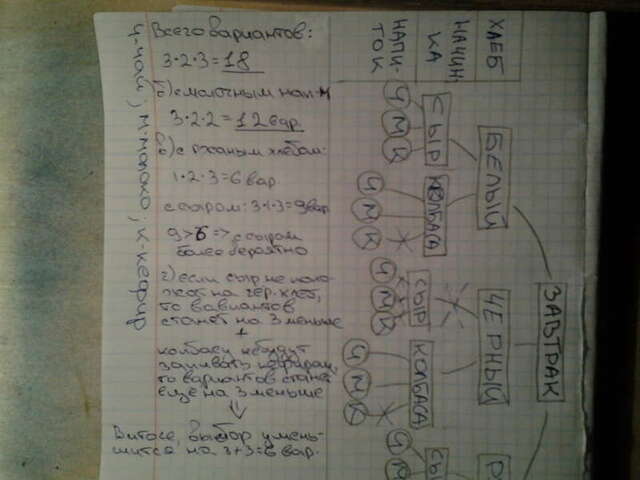 Всего вариантов:
3·2·3=18
б) с молочным нап-м
3·2·2=12 вар
в) с ржаным хлебом:
1·2·3=6 вар
с сыром: 3·1·3=9 вар
9>6 => с сыром
более вероятно
г) если сыр не
на чер. хлеб,
то вариантов
станет на 3 меньше
+
колбасу не будут
запивать кефиром,
то вариантов станет
ещё на 3 меньше
В итоге, выбор умень-
шится на 3+3=6 вар.
ч-чай; м-молоко; к-кефир
ХЛЕБ
НАЧИН-
КА
НАПИ-
ТОК
ЗАВТРАК
БЕЛЫЙ
ЧЕРНЫЙ
Р
СЫР
КОЛБАСА
СЫР
КОЛБАСА
СЫ
Ч
М
К
Ч
М
К
Ч
М
К
Ч
М
К
Ч
М